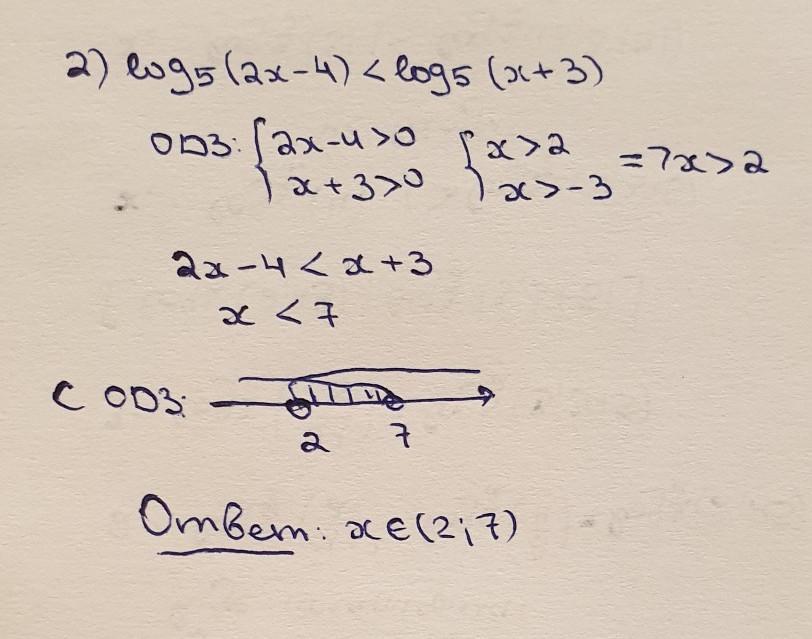 2) log₅(2x-4) < log₅(x+3)
ОДЗ: { 2x-4>0 { x>2 => x>2
x+3>0 x>-3
2x-4 < x+3
x < 7
С ОДЗ:
2 7
Ответ: x∈(2;7)